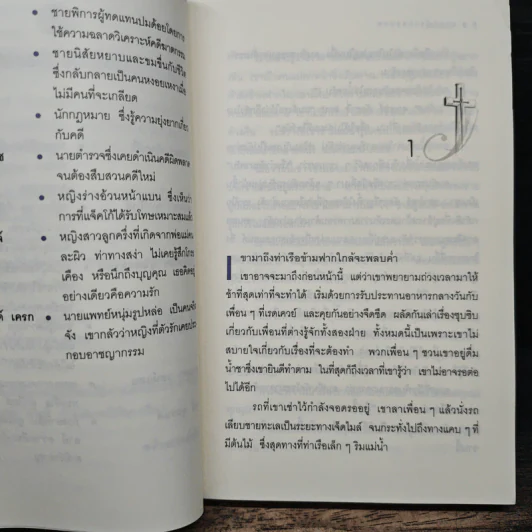 ชายพิการผู้ทดแทนปมด้อยโดยการ
ใช้ความฉลาดวิเคราะห์คดีฆาตกรรม
ชายนิสัยหยาบและขมขื่นกับชีวิต
ซึ่งกลับกลายเป็นคนหงอยเหงาเมื่อ
ไม่มีคนที่จะเกลียด
นักกฎหมาย ซึ่งรู้ความยุ่งยากเกี่ยว
กับคดี
นายตำรวจซึ่งเคยดำเนินคดีผิดพลาด
จนต้องสืบสวนคดีใหม่
หญิงร่างอ้วนหน้าแบน ซึ่งเห็นว่า
การที่แจ็คโก้ได้รับโทษเหมาะสมแล้ว
หญิงสาวลูกครึ่งที่เกิดจากพ่อแม่คน
ละผิว ท่าทางสง่า ไม่เคยรู้สึกโกรธ
เคือง หรือนึกถึงบุญคุณ เธอคิดอยู่
อย่างเดียวคือความรัก
เครก
นายแพทย์หนุ่มรูปหล่อ เป็นคนจริง
จัง เขากลัวว่าหญิงที่ตัวรักเคยประ
กอบอาชญากรรม
1
เขามาถึงท่าเรือข้ามฟากใกล้จะพลบค่ำ
เขาอาจจะมาถึงก่อนหน้านี้ แต่ว่าเขาพยายามถ่วงเวลามาให้
ช้าที่สุดเท่าที่จะทำได้ เริ่มด้วยการรับประทานอาหารกลางวันกับ
เพื่อน ๆ ที่เรดเควย์ และคุยกันอย่างจืดชืด ผลัดกันเล่าเรื่องซุบซิบ
เกี่ยวกับเพื่อนที่ต่างรู้จักทั้งสองฝ่าย ทั้งหมดนี้เป็นเพราะเขาไม่
สบายใจเกี่ยวกับเรื่องที่จะต้องทำ พวกเพื่อน ๆ ชวนเขาอยู่ดื่ม
น้ำชาซึ่งเขายินดีทำตาม ในที่สุดก็ถึงเวลาที่เขารู้ว่า เขาไม่อาจรอต่อ
ไปได้อีก
รถที่เขาเช่าไว้กำลังจอดรออยู่ เขาลาเพื่อน ๆ แล้วนั่งรถ
เลียบชายทะเลเป็นระยะทางเจ็ดไมล์ จนกระทั่งไปถึงทางแคบ ๆ ที่
มีต้นไม้ ซึ่งสุดทางที่ท่าเรือเล็ก ๆ ริมแม่น้ำ